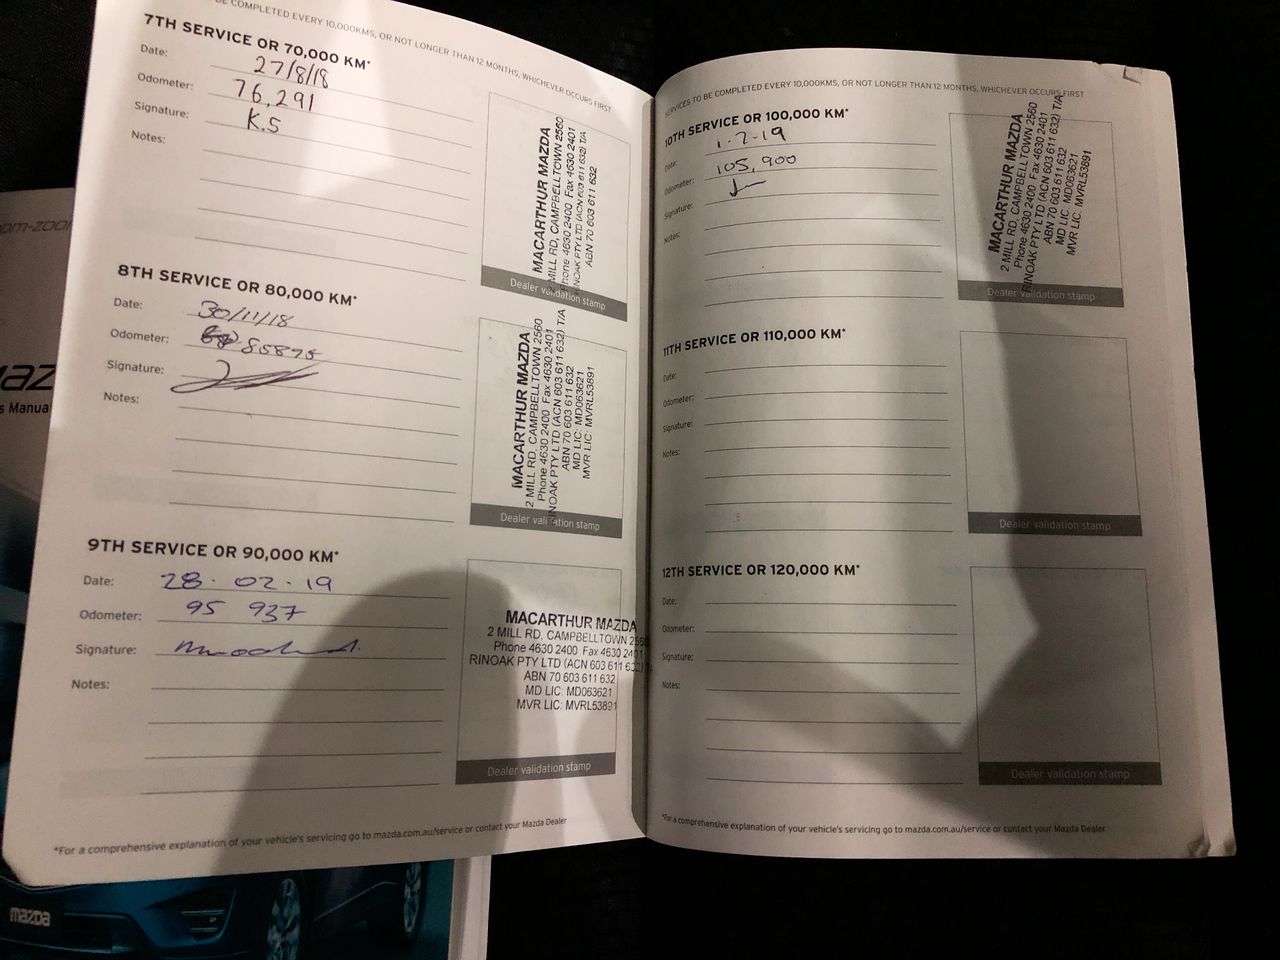 BE COMPLETED EVERY 10,000KMS, OR NOT LONGER THAN 12 MONTHS, WHICHEVER OCCURS FIRST
7TH SERVICE OR 70,000 KM*
Date: 27/8/18
Odometer: 76,291
Signature: K.S
Notes:
MACARTHUR MAZDA
2 MILL RD, CAMPBELLTOWN 2560
Phone 4630 2400 Fax 4630 2401
RINOAK PTY LTD (ACN 603 611 632) T/A
ABN 70 603 611 632
Dealer validation stamp
8TH SERVICE OR 80,000 KM*
Date: 30/11/18
Odometer: 85895
Signature:
Notes:
MACARTHUR MAZDA
2 MILL RD, CAMPBELLTOWN 2560
Phone 4630 2400 Fax 4630 2401
RINOAK PTY LTD (ACN 603 611 632) T/A
ABN 70 603 611 632
MD LIC: MD063621
MVR LIC: MVRL53891
Dealer validation stamp
9TH SERVICE OR 90,000 KM*
Date: 28.02.19
Odometer: 95 937
Signature:
Notes:
MACARTHUR MAZDA
2 MILL RD, CAMPBELLTOWN 2560
Phone 4630 2400 Fax 4630 2401
RINOAK PTY LTD (ACN 603 611 632) T/A
ABN 70 603 611 632
MD LIC: MD063621
MVR LIC: MVRL53891
Dealer validation stamp
*For a comprehensive explanation of your vehicle's servicing go to mazda.com.au/service or contact your Mazda Dealer
SERVICES TO BE COMPLETED EVERY 10,000KMS, OR NOT LONGER THAN 12 MONTHS, WHICHEVER OCCURS FIRST
10TH SERVICE OR 100,000 KM*
Date: 1.7.19
Odometer: 105,900
Signature:
Notes:
MACARTHUR MAZDA
2 MILL RD, CAMPBELLTOWN 2560
Phone 4630 2400 Fax 4630 2401
RINOAK PTY LTD (ACN 603 611 632) T/A
ABN 70 603 611 632
MD LIC: MD063621
MVR LIC: MVRL53891
Dealer validation stamp
11TH SERVICE OR 110,000 KM*
Date:
Odometer:
Signature:
Notes:
Dealer validation stamp
12TH SERVICE OR 120,000 KM*
Date:
Odometer:
Signature:
Notes:
Dealer validation stamp
*For a comprehensive explanation of your vehicle's servicing go to mazda.com.au/service or contact your Mazda Dealer
om-zoo
maz
s Manua
mazda